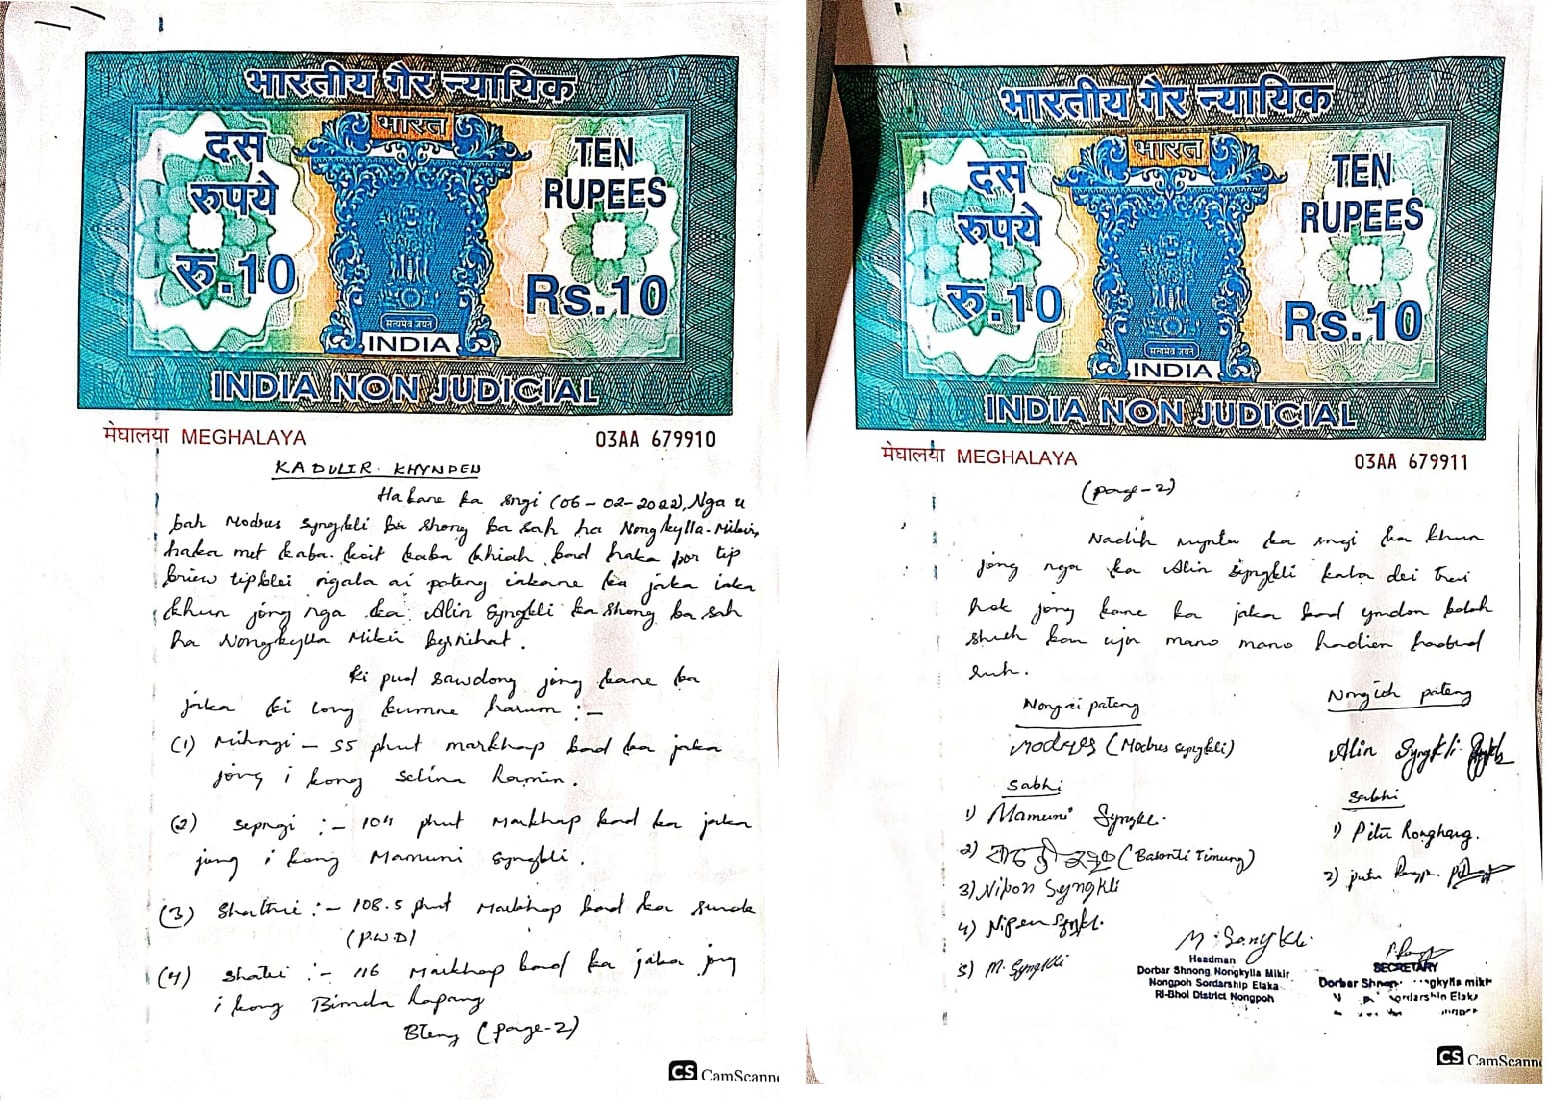 भारतीय गैर न्यायिक
भारत
दस
रुपये
रु.10
TEN
RUPEES
Rs.10
सत्यमेव जयते
INDIA
INDIA NON JUDICIAL
मेघालया MEGHALAYA
03AA 679910
KA DULIR KHYNDEW
Hakane ka sngi (06-02-2022), Nga u
bah Modres Syngkli ba shong ba sah ha Nongkylla-Mikir,
haka met kaba koit kaba khiah bad haka por tip
briew tipblei ngala ai pateng iakane ka jaka iaka
khun jong nga ka Alin Syngkli ka shong ba sah
ha Nongkylla Mikir byrnihat.
Ki pud sawdong jong kane ka
jaka ki long kumne harum :-
(1) Mihngi - 55 phut markhap bad ka jaka
jong i kong Selina Ramin.
(2) Sepngi :- 104 phut markhap bad ka jaka
jong i kong Mamuni Syngkli.
(3) Shathie :- 108.5 phut markhap bad ka surok
(P.W.D)
(4) Shatei :- 116 markhap bad ka jaka jong
i kong Bimola
(page-2)
CS CamScann
भारतीय गैर न्यायिक
भारत
दस
रुपये
रु.10
TEN
RUPEES
Rs.10
सत्यमेव जयते
INDIA
INDIA NON JUDICIAL
मेघालया MEGHALAYA
03AA 679911
(page-2)
Nadih mynta ka sngi ka khun
jong nga ka Alin Syngkli kaba dei trai
hok jong kane ka jaka bad ymdon bolah
shuh ban ujor mano mano hadien habud
ruh.
Nongai pateng
Modres (Modres Syngkli)
Sabhi
1) Mamuni Syngkli.
2) (Basonti Timung)
3) Nipon Syngkli
4) Nipen Syngkli.
5) M. Syngkli
Nongioh pateng
Alin Syngkli
Sabhi
1) Pitu Ronghang.
2)
M. Syngkli
Headman
Dorbar Shnong Nongkylla Mikir
Nongpoh Sordarship Elaka
Ri-Bhoi District Nongpoh
SECRETARY
Dorbar Shnong Nongkylla mikir
Sordarship Elaka
CS CamScann